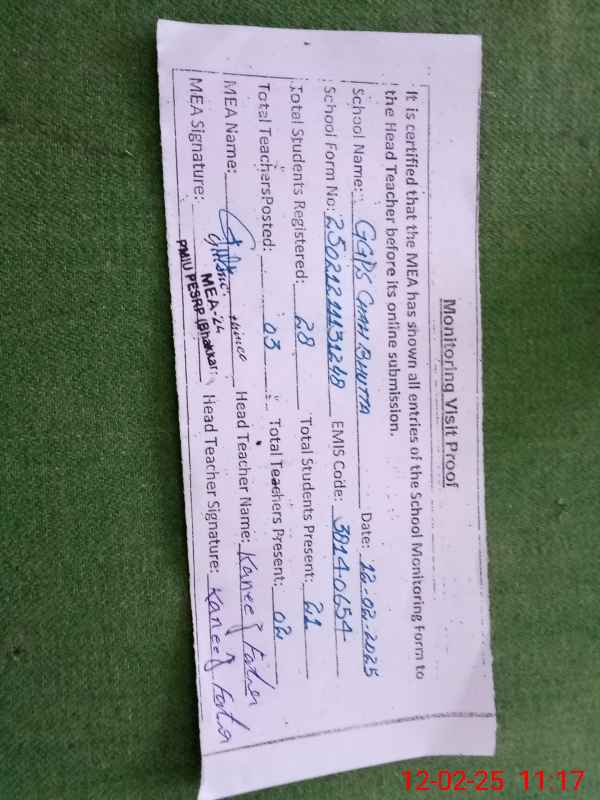 Monitoring Visit Proof
It is certified that the MEA has shown all entries of the School Monitoring Form to
the Head Teacher before its online submission.
School Name: GGPS CHAH BHUTTA Date: 12-02-2025
School Form No: EMIS Code: 30140654
Total Students Registered: 28 Total Students Present: 21
Total TeachersPosted: 03 Total Teachers Present: 02
MEA Name: Head Teacher Name: Kaneez
MEA Signature: Head Teacher Signature: Kaneez
MEA-24
PMIU PESRP (Bhakkar)
12-02-25 11:17